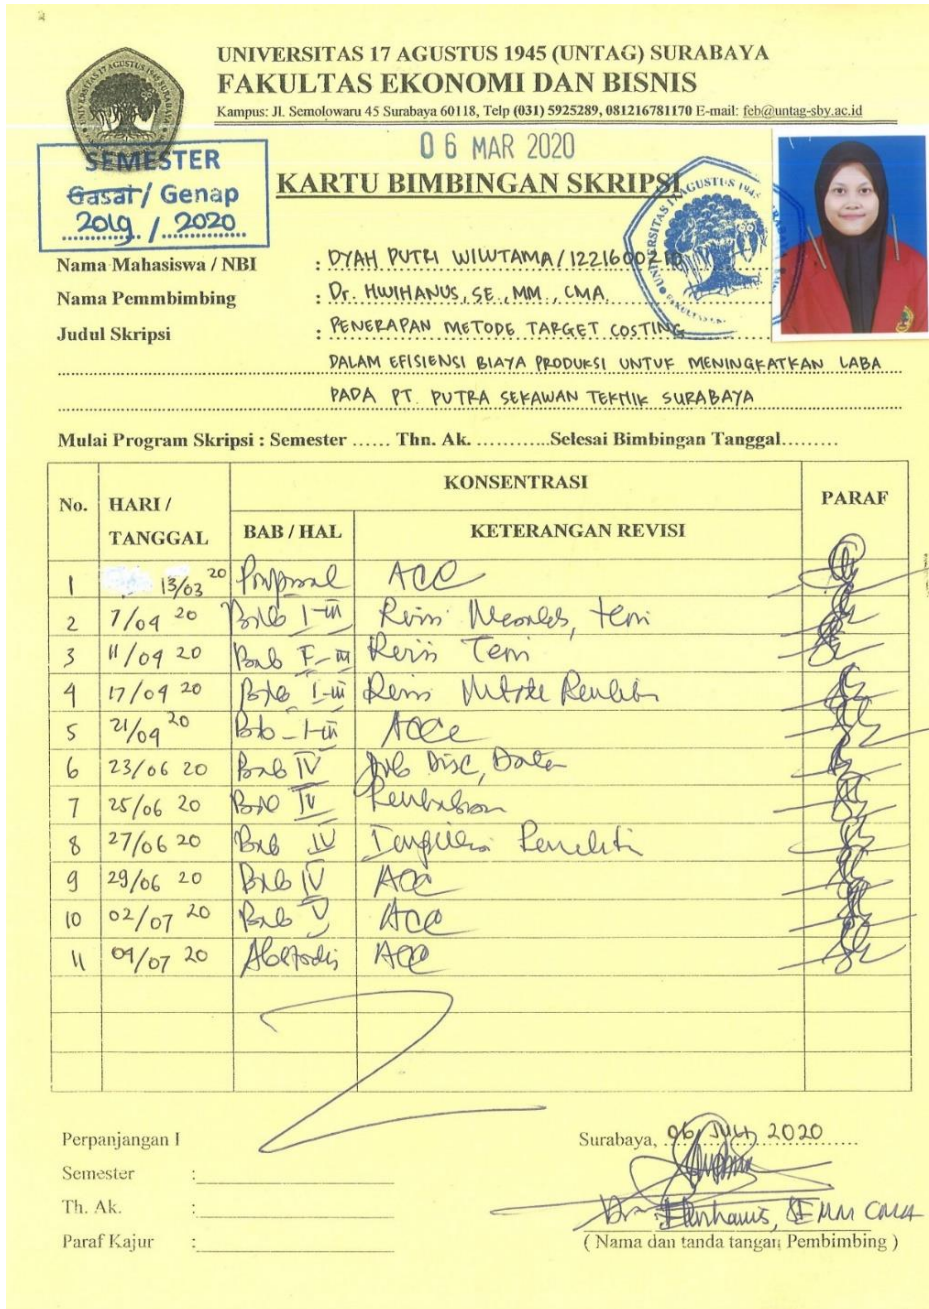 UNIVERSITAS 17 AGUSTUS 1945 (UNTAG) SURABAYA
FAKULTAS EKONOMI DAN BISNIS
Kampus: Jl. Semolowaru 45 Surabaya 60118, Telp (031) 5925289, 081216781170 E-mail: feb@untag-sby.ac.id
06 MAR 2020
SEMESTER
Gasal / Genap
2019 / 2020
KARTU BIMBINGAN SKRIPSI
Nama Mahasiswa / NBI : DYAH PUTRI WILUTAMA / 1221600210
Nama Pemmbimbing : Dr. HWIHANUS, SE., MM., CMA.
Judul Skripsi : PENERAPAN METODE TARGET COSTING
DALAM EFISIENSI BIAYA PRODUKSI UNTUK MENINGKATKAN LABA
PADA PT. PUTRA SEKAWAN TEKNIK SURABAYA
Mulai Program Skripsi : Semester ...... Thn. Ak. ............Selesai Bimbingan Tanggal.........
No. HARI / TANGGAL KONSENTRASI PARAF
BAB / HAL KETERANGAN REVISI
1 13/03 20 Proposal ACC
2 7/04 20 Bab I-III Revisi
3 11/04 20 Bab I-III Revisi Teori
4 17/04 20 Bab I-III Revisi
5 21/04 20 Bab I-III ACC
6 23/06 20 Bab IV Data
7 25/06 20 Bab IV
8 27/06 20 Bab IV
9 29/06 20 Bab IV ACC
10 02/07 20 Bab V ACC
11 04/07 20 ACC
Perpanjangan I
Semester :
Th. Ak. :
Paraf Kajur :
Surabaya, 06 Juli 2020
Dr. Hwihanus, SE MM CMA
( Nama dan tanda tangan Pembimbing )